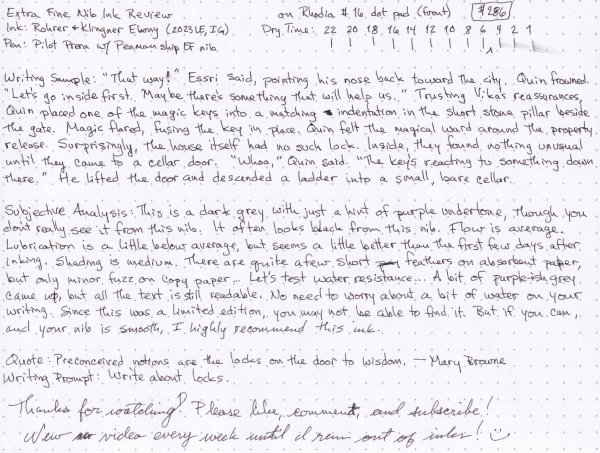 Extra Fine Nib Ink Review on Rhodia #16 dot pad (front) #286
Ink: Rohrer & Klingner Ebony (2023 LE, IG) Dry Time: 22 20 18 16 14 12 10 8 6 4 2 1
Pen: Pilot Prera w/ Penmanship EF nib
Writing Sample: "That way!" Essri said, pointing his nose back toward the city. Quin frowned.
"Let's go inside first. Maybe there's something that will help us." Trusting Vika's reassurances,
Quin placed one of the magic keys into a matching indentation in the short stone pillar beside
the gate. Magic flared, fusing the key in place. Quin felt the magical ward around the property
release. Surprisingly, the house itself had no such lock. Inside, they found nothing unusual
until they came to a cellar door. "Whoa," Quin said. "The key's reacting to something down
there." He lifted the door and descended a ladder into a small, bare cellar.
Subjective Analysis: This is a dark grey with just a hint of purple undertone, though you
don't really see it from this nib. It often looks black from this nib. Flow is average.
Lubrication is a little below average, but seems a little better than the first few days after
inking. Shading is medium. There are quite a few short feathers on absorbent paper,
but only minor fuzz on copy paper... Let's test water resistance... A bit of purple-ish grey
came up, but all the text is still readable. No need to worry about a bit of water on your
writing. Since this was a limited edition, you may not be able to find it. But if you can,
and your nib is smooth, I highly recommend this ink.
Quote: Preconceived notions are the locks on the door to wisdom. — Mary Browne
Writing Prompt: Write about locks.
Thanks for watching! Please like, comment, and subscribe!
New video every week until I run out of inks!